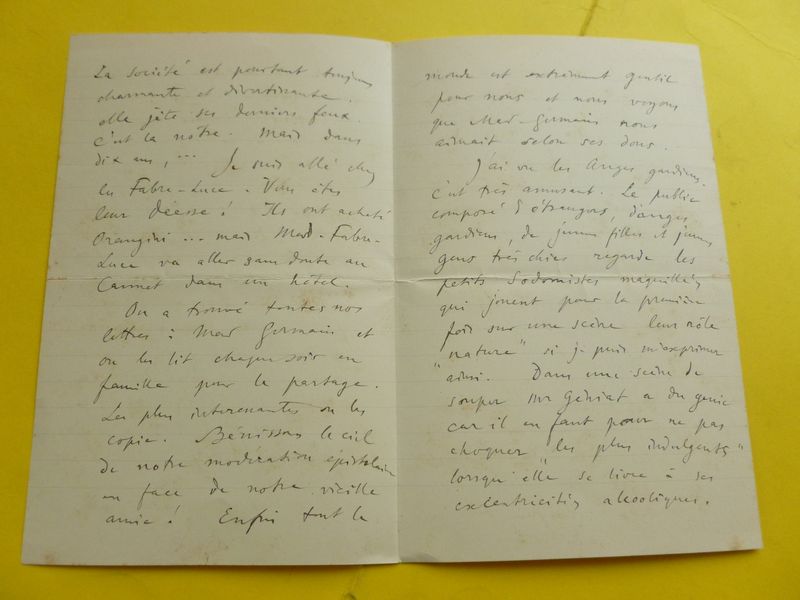 La société est pourtant toujours
charmante et divertissante.
elle jète ses derniers feux.
c'est la nôtre. Mais dans
dix ans, ... Je suis allé chez
les Fabre-Luce. Vous êtes
leur Déesse! Ils ont acheté
Orangini ... mais Mad-Fabre-
Luce va aller sans doute au
Cannet dans un hôtel.
On a trouvé toutes nos
lettres à Mad Germain et
on les lit chaque soir en
famille pour le partage.
Les plus interenantes on les
copie. Bénissons le ciel
de notre modération épistolaire
en face de notre vieille
amie! Enfin tout le
monde est extrêment gentil
pour nous et nous voyons
que Mad-Germain nous
aimait selon ses dons.
J'ai vu les Anges gardiens.
c'est très amusant. Le public
composé d'étrangers, d'anges
gardiens, de jeunes filles et jeunes
gens très chics regarde les
petits Sodomistes maquillés
qui jouent pour la première
fois sur une scène leur rôle
"nature" si je puis m'exprimer
ainsi. Dans une scène de
souper Mr Géniat a du genie
car il en faut pour ne pas
choquer "les plus indulgents"
lorsqu'elle se livre à ses
excentricités alcooliques.